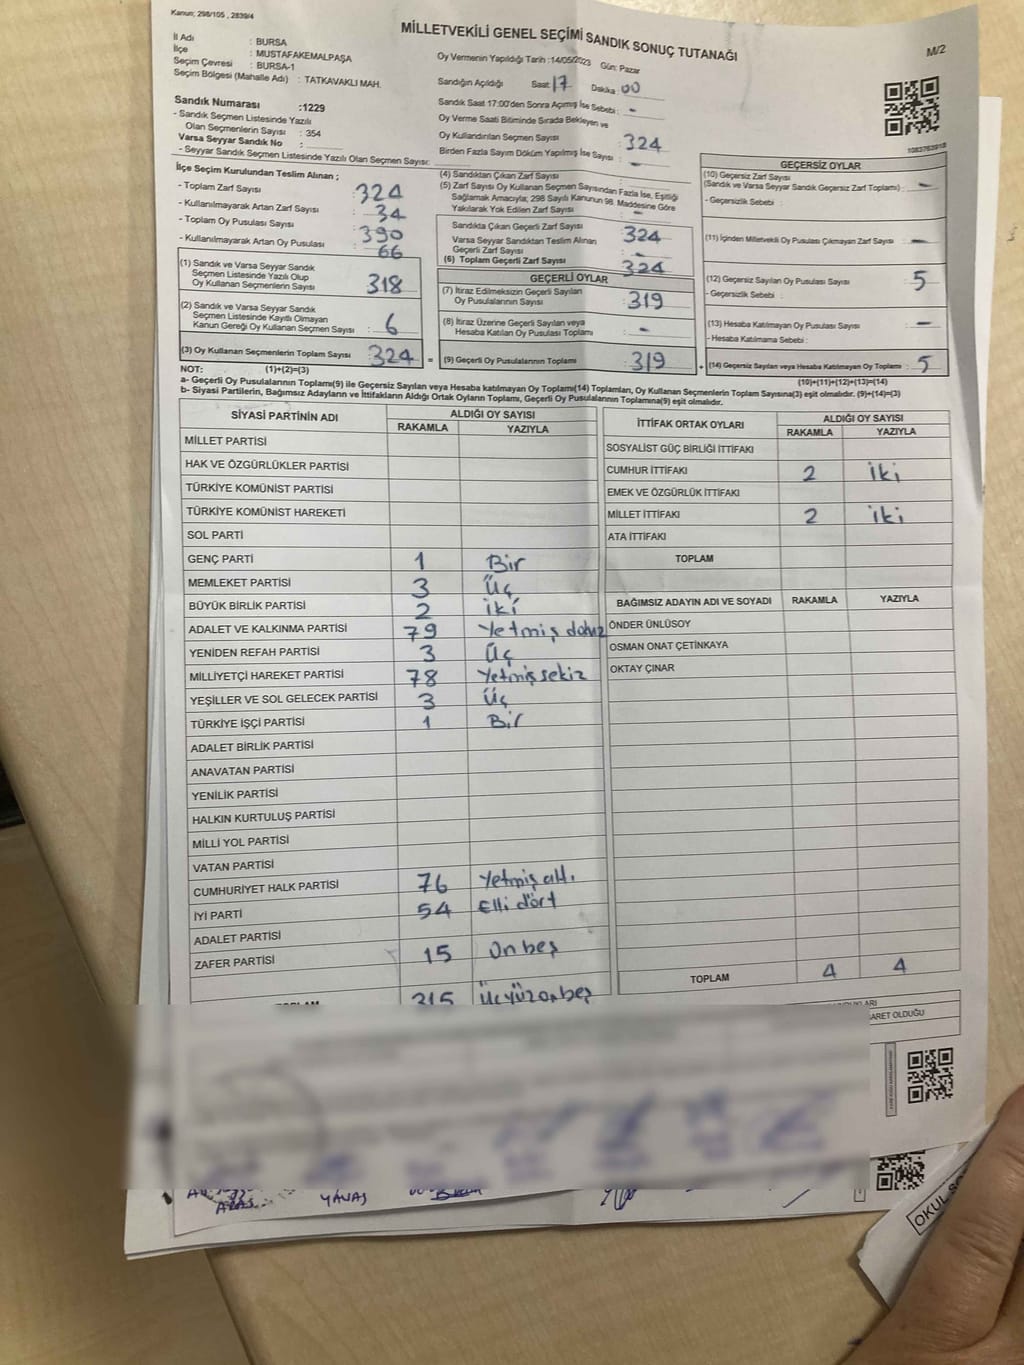 Kanun; 298/105 , 2839/4
MİLLETVEKİLİ GENEL SEÇİMİ SANDIK SONUÇ TUTANAĞI
M/2
İl Adı : BURSA
İlçe : MUSTAFAKEMALPAŞA
Seçim Çevresi : BURSA-1
Seçim Bölgesi (Mahalle Adı) : TATKAVAKLI MAH.
Oy Vermenin Yapıldığı Tarih :14/05/2023 Gün: Pazar
Sandığın Açıldığı Saat 17 Dakika 00
Sandık Saat 17:00'den Sonra Açımış İse Sebebi : -
Oy Verme Saati Bitiminde Sırada Bekleyen ve
Oy Kullandırılan Seçmen Sayısı 324
Birden Fazla Sayım Döküm Yapılmış İse Sayısı : -
Sandık Numarası :1229
- Sandık Seçmen Listesinde Yazılı
Olan Seçmenlerin Sayısı : 354
Varsa Seyyar Sandık No :
- Seyyar Sandık Seçmen Listesinde Yazılı Olan Seçmen Sayısı:
1083763918
İlçe Seçim Kurulundan Teslim Alınan ;
- Toplam Zarf Sayısı : 324
- Kullanılmayarak Artan Zarf Sayısı : 34
- Toplam Oy Pusulası Sayısı : 390
- Kullanılmayarak Artan Oy Pusulası : 66
(1) Sandık ve Varsa Seyyar Sandık
Seçmen Listesinde Yazılı Olup
Oy Kullanan Seçmenlerin Sayısı : 318
(2) Sandık ve Varsa Seyyar Sandık
Seçmen Listesinde Kayıtlı Olmayan
Kanun Gereği Oy Kullanan Seçmen Sayısı : 6
(3) Oy Kullanan Seçmenlerin Toplam Sayısı : 324 =
(4) Sandıktan Çıkan Zarf Sayısı :
(5) Zarf Sayısı Oy Kullanan Seçmen Sayısından Fazla İse, Eşitliği
Sağlamak Amacıyla; 298 Sayılı Kanunun 98. Maddesine Göre
Yakılarak Yok Edilen Zarf Sayısı : -
Sandıkta Çıkan Geçerli Zarf Sayısı : 324
Varsa Seyyar Sandıktan Teslim Alınan
Geçerli Zarf Sayısı : -
(6) Toplam Geçerli Zarf Sayısı : 324
GEÇERLİ OYLAR
(7) İtiraz Edilmeksizin Geçerli Sayılan
Oy Pusulalarının Sayısı : 319
(8) İtiraz Üzerine Geçerli Sayılan veya
Hesaba Katılan Oy Pusulası Toplamı : -
(9) Geçerli Oy Pusulalarının Toplamı : 319 +
GEÇERSİZ OYLAR
(10) Geçersiz Zarf Sayısı
(Sandık ve Varsa Seyyar Sandık Geçersiz Zarf Toplamı) : -
- Geçersizlik Sebebi :
(11) İçinden Milletvekili Oy Pusulası Çıkmayan Zarf Sayısı : -
(12) Geçersiz Sayılan Oy Pusulası Sayısı : 5
- Geçersizlik Sebebi :
(13) Hesaba Katılmayan Oy Pusulası Sayısı : -
- Hesaba Katılmama Sebebi :
(14) Geçersiz Sayılan veya Hesaba Katılmayan Oy Toplamı : 5
NOT: (1)+(2)=(3)
(10)+(11)+(12)+(13)=(14)
a- Geçerli Oy Pusulalarının Toplamı(9) ile Geçersiz Sayılan veya Hesaba katılmayan Oy Toplamı(14) Toplamları, Oy Kullanan Seçmenlerin Toplam Sayısına(3) eşit olmalıdır. (9)+(14)=(3)
b- Siyasi Partilerin, Bağımsız Adayların ve İttifakların Aldığı Ortak Oyların Toplamı, Geçerli Oy Pusulalarının Toplamına(9) eşit olmalıdır.
SİYASİ PARTİNİN ADI ALDIĞI OY SAYISI
RAKAMLA YAZIYLA
MİLLET PARTİSİ
HAK VE ÖZGÜRLÜKLER PARTİSİ
TÜRKİYE KOMÜNİST PARTİSİ
TÜRKİYE KOMÜNİST HAREKETİ
SOL PARTİ
GENÇ PARTİ 1 Bir
MEMLEKET PARTİSİ 3 Üç
BÜYÜK BİRLİK PARTİSİ 2 iki
ADALET VE KALKINMA PARTİSİ 79 Yetmiş dokuz
YENİDEN REFAH PARTİSİ 3 Üç
MİLLİYETÇİ HAREKET PARTİSİ 78 Yetmişsekiz
YEŞİLLER VE SOL GELECEK PARTİSİ 3 Üç
TÜRKİYE İŞÇİ PARTİSİ 1 Bir
ADALET BİRLİK PARTİSİ
ANAVATAN PARTİSİ
YENİLİK PARTİSİ
HALKIN KURTULUŞ PARTİSİ
MİLLİ YOL PARTİSİ
VATAN PARTİSİ
CUMHURİYET HALK PARTİSİ 76 Yetmiş altı
İYİ PARTİ 54 Elli dört
ADALET PARTİSİ
ZAFER PARTİSİ 15 on beş
315 Üçyüzonbeş
İTTİFAK ORTAK OYLARI ALDIĞI OY SAYISI
RAKAMLA YAZIYLA
SOSYALİST GÜÇ BİRLİĞİ İTTİFAKI
CUMHUR İTTİFAKI 2 iki
EMEK VE ÖZGÜRLÜK İTTİFAKI
MİLLET İTTİFAKI 2 iki
ATA İTTİFAKI
TOPLAM
BAĞIMSIZ ADAYIN ADI VE SOYADI RAKAMLA YAZIYLA
ÖNDER ÜNLÜSOY
OSMAN ONAT ÇETİNKAYA
OKTAY ÇINAR
TOPLAM 4 4
ARET OLDUĞU
YAVAŞ
OKUL